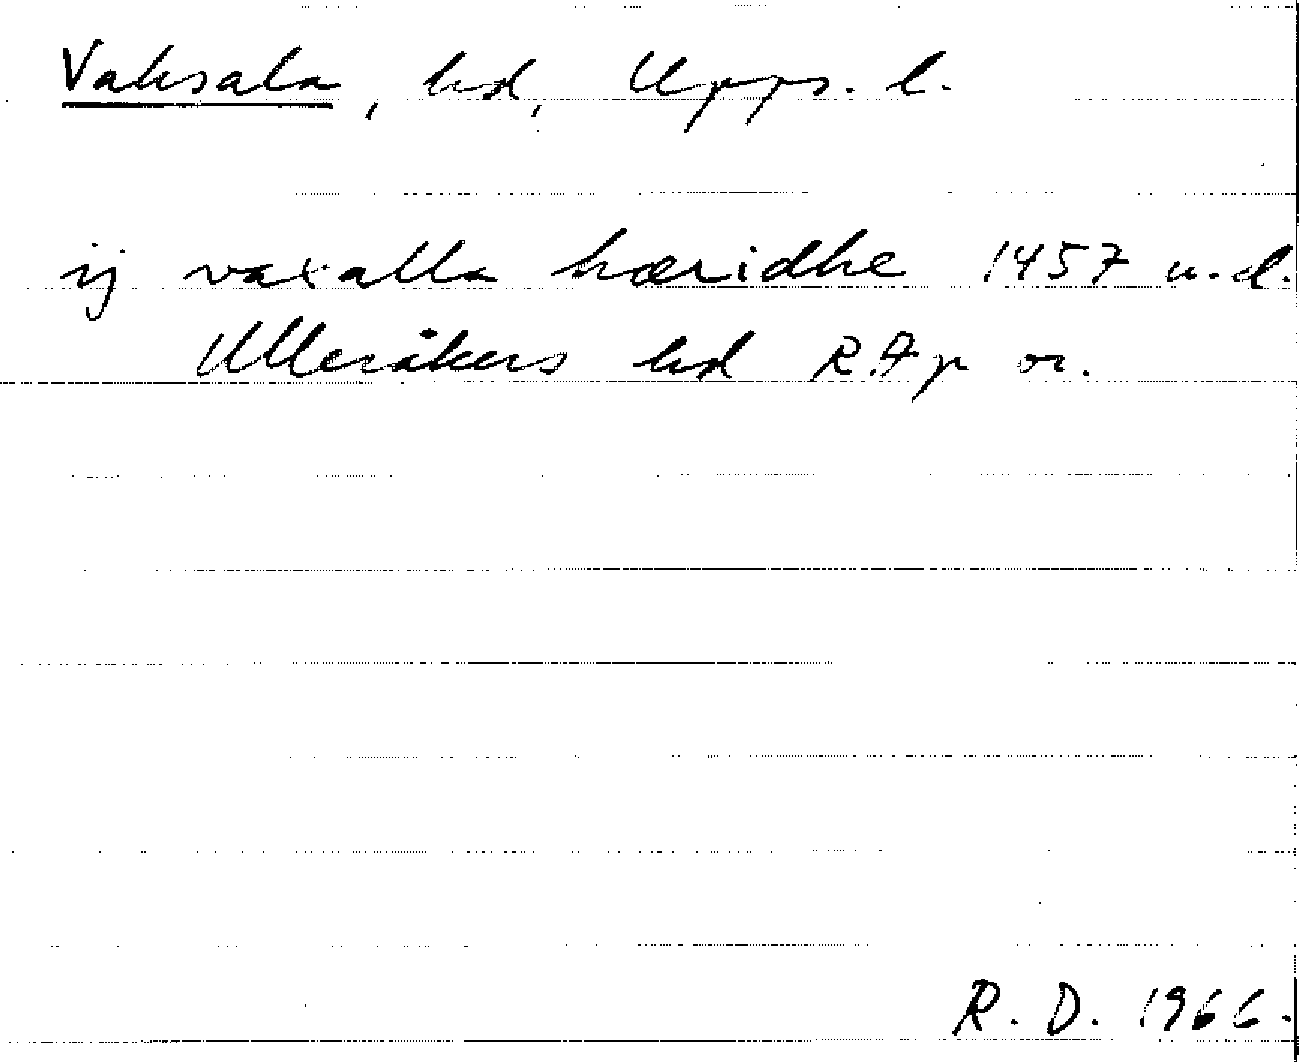 Vaksala, hd, Upps. l.
ij vaxalla hæridhe 1457 u. d.
Ulleråkers hd RAp or.
R. D. 1966.